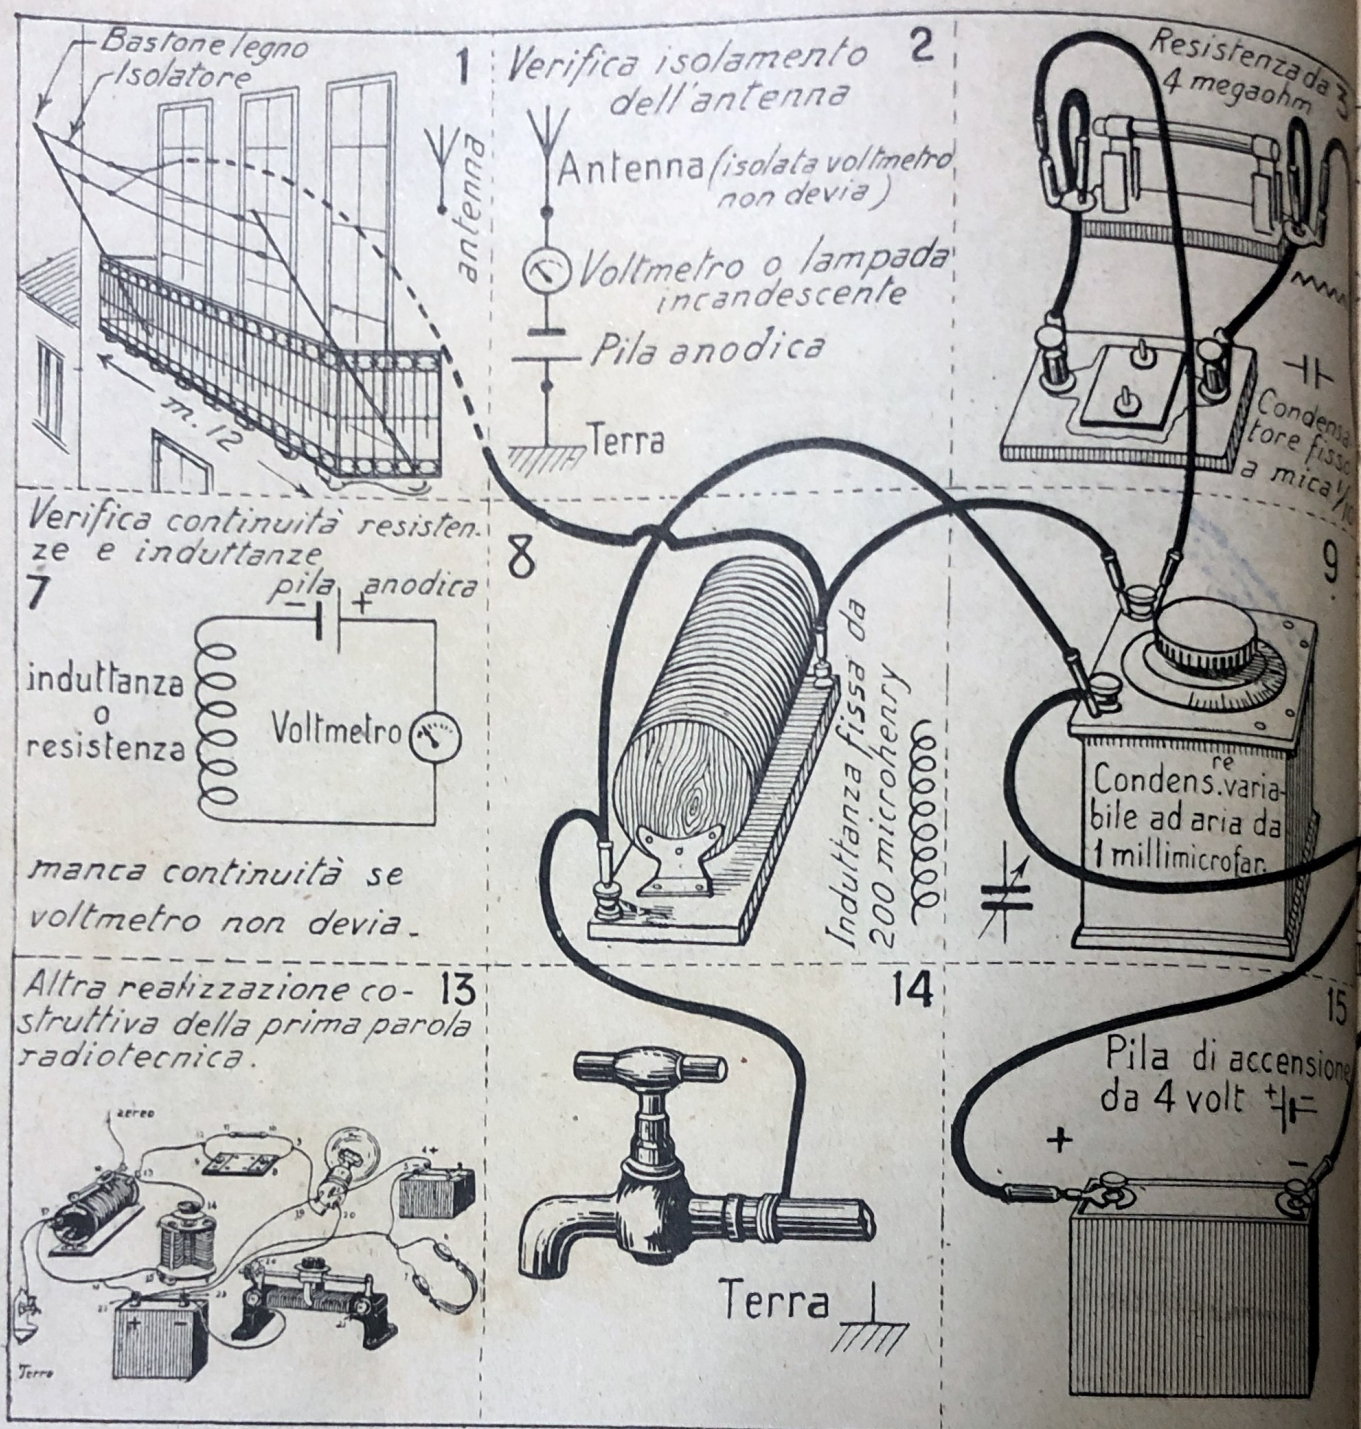 Bastone legno
Isolatore
1
antenna
m. 12
Verifica isolamento
dell'antenna
2
Antenna (isolata voltmetro
non devia)
Voltmetro o lampada
incandescente
Pila anodica
Terra
Resistenza da
4 megaohm
3
Condensa
tore fisso
a mica 1/10
Verifica continuità resisten-
ze e induttanze
7
pila anodica
- +
induttanza
o
resistenza
Voltmetro
manca continuità se
voltmetro non devia.
8
Induttanza fissa da
200 microhenry
9
re
Condens. varia-
bile ad aria da
1 millimicrofar.
Altra realizzazione co-
struttiva della prima parola
radiotecnica.
13
aereo
+ -
Terra
14
Terra
15
Pila di accensione
da 4 volt + -
+
-